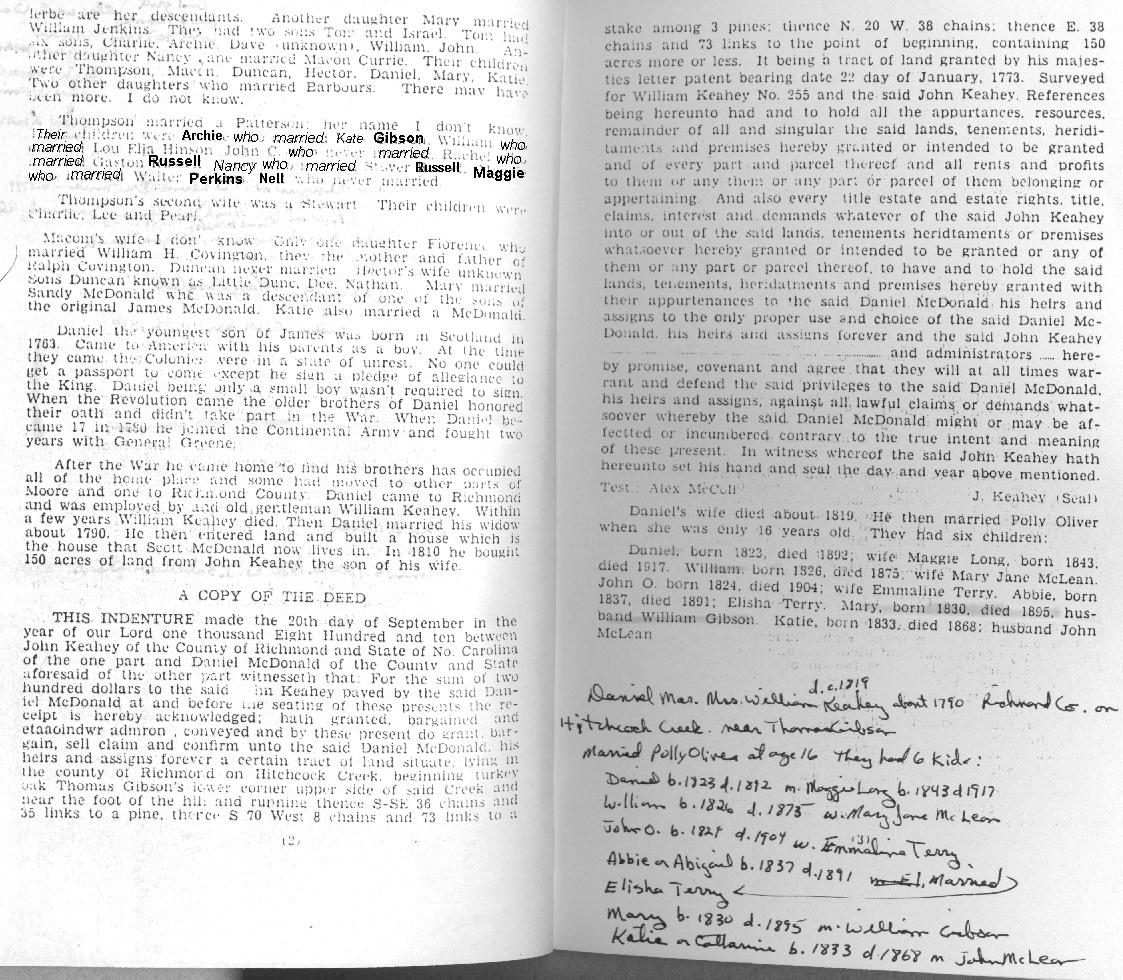 lerbe are her descendants. Another daughter Mary married
William Jenkins. They had two sons Tom and Israel. Tom had
six sons, Charlie, Archie, Dave (unknown), William, John. An-
other daughter Nancy Jane married Macon Currie. Their children
were Thompson, Macon, Duncan, Hector, Daniel, Mary, Katie.
Two other daughters who married Barbours. There may have
been more. I do not know.
Thompson married a Patterson; her name I don't know.
Their children were Archie who married Kate Gibson, William who
married Lou Ella Hinson, John C. who never married, Rachel who
married Gaston Russell Nancy who married Stover Russell Maggie
who married Walter Perkins Nell who never married.
Thompson's second wife was a Stewart. Their children were
Charlie, Lee and Pearl.
Macom's wife I don't know. Only one daughter Florence who
married William H. Covington, they the mother and father of
Ralph Covington. Duncan never married. Hector's wife unknown
Sons Duncan known as Little Dunc, Dee, Nathan. Mary married
Sandy McDonald who was a descendant of one of the sons of
the original James McDonald. Katie also married a McDonald.
Daniel the youngest son of James was born in Scotland in
1763. Came to America with his parents as a boy. At the time
they came the Colonies were in a state of unrest. No one could
get a passport to come except he sign a pledge of allegiance to
the King. Daniel being only a small boy wasn't required to sign.
When the Revolution came the older brothers of Daniel honored
their oath and didn't take part in the War. When Daniel be-
came 17 in 1780 he joined the Continental Army and fought two
years with General Greene.
After the War he came home to find his brothers has occupied
all of the home place and some had moved to other parts of
Moore and one to Richmond County. Daniel came to Richmond
and was employed by and old gentleman William Keahey. Within
a few years William Keahey died. Then Daniel married his widow
about 1790. He then entered land and built a house which is
the house that Scott McDonald now lives in. In 1810 he bought
150 acres of land from John Keahey the son of his wife.
A COPY OF THE DEED
THIS INDENTURE made the 20th day of September in the
year of our Lord one thousand Eight Hundred and ten between
John Keahey of the County of Richmond and State of No. Carolina
of the one part and Daniel McDonald of the County and State
aforesaid of the other part witnesseth that: For the sum of two
hundred dollars to the said hn Keahey paved by the said Dan-
iel McDonald at and before the seating of these presents the re-
ceipt is hereby acknowledged; hath granted, bargained and
etaaoindwr admron , conveyed and by these present do grant, bar-
gain, sell claim and confirm unto the said Daniel McDonald, his
heirs and assigns forever a certain tract of land situate, lying in
the county of Richmond on Hitchcock Creek, beginning turkey
oak Thomas Gibson's lower corner upper side of said Creek and
near the foot of the hill and running thence S-SE 36 chains and
35 links to a pine, thence S 70 West 8 chains and 73 links to a
(2)
stake among 3 pines; thence N. 20 W. 38 chains; thence E. 38
chains and 73 links to the point of beginning, containing 150
acres more or less. It being a tract of land granted by his majes-
ties letter patent bearing date 22 day of January, 1773. Surveyed
for William Keahey No. 255 and the said John Keahey. References
being hereunto had and to hold all the appurtances, resources,
remainder of all and singular the said lands, tenements, heridi-
taments and premises hereby granted or intended to be granted
and of every part and parcel thereof and all rents and profits
to them or any them or any part or parcel of them belonging or
appertaining. And also every title estate and estate rights, title,
claims, interest and demands whatever of the said John Keahey
into or out of the said lands, tenements heridtaments or premises
whatsoever hereby granted or intended to be granted or any of
them or any part or parcel thereof, to have and to hold the said
lands, tenements, heridatments and premises hereby granted with
their appurtenances to the said Daniel McDonald his heirs and
assigns to the only proper use and choice of the said Daniel Mc-
Donald, his heirs and assigns forever and the said John Keahey
........................................ and administrators ..... here-
by promise, covenant and agree that they will at all times war-
rant and defend the said privileges to the said Daniel McDonald,
his heirs and assigns, against all lawful claims or demands what-
soever whereby the said Daniel McDonald might or may be af-
fectted or incumbered contrary to the true intent and meaning
of these present. In witness whereof the said John Keahey hath
hereunto set his hand and seal the day and year above mentioned.
Test.: Alex McColl
J. Keahey (Seal)
Daniel's wife died about 1819. He then married Polly Oliver
when she was only 16 years old. They had six children:
Daniel, born 1823, died 1892; wife Maggie Long, born 1843,
died 1917. William, born 1826, died 1875; wife Mary Jane McLean.
John O. born 1824, died 1904; wife Emmaline Terry. Abbie, born
1837, died 1891; Elisha Terry. Mary, born 1830, died 1895, hus-
band William Gibson. Katie, born 1833, died 1868; husband John
McLean
d. c. 1819
Daniel Mar. Mrs. William Keahey about 1790 Richmond Co. on
Hitchcock Creek. near Thomas Gibson
Married Polly Oliver at age 16 They had 6 kids:
Daniel b. 1823 d. 1892 m. Maggie Long b. 1843 d 1917
William b. 1826 d. 1875 w. Mary Jane McLean
John O. b. 1824 d. 1904 w. Emmaline (3) Terry.
Abbie or Abigail b. 1837 d. 1891 m El, Married
Elisha Terry
Mary b. 1830 d. 1895 m. William Gibson
Katie or Catharine b. 1833 d 1868 m John McLean